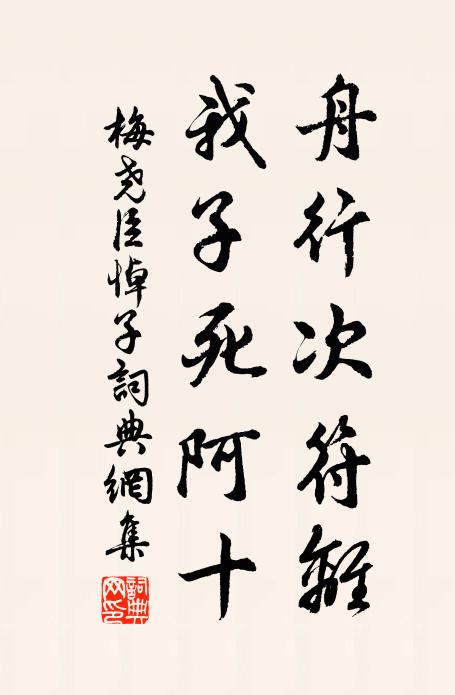 舟行次符離
我子死阿十
梅堯臣悼子詞典網集
詞典網印